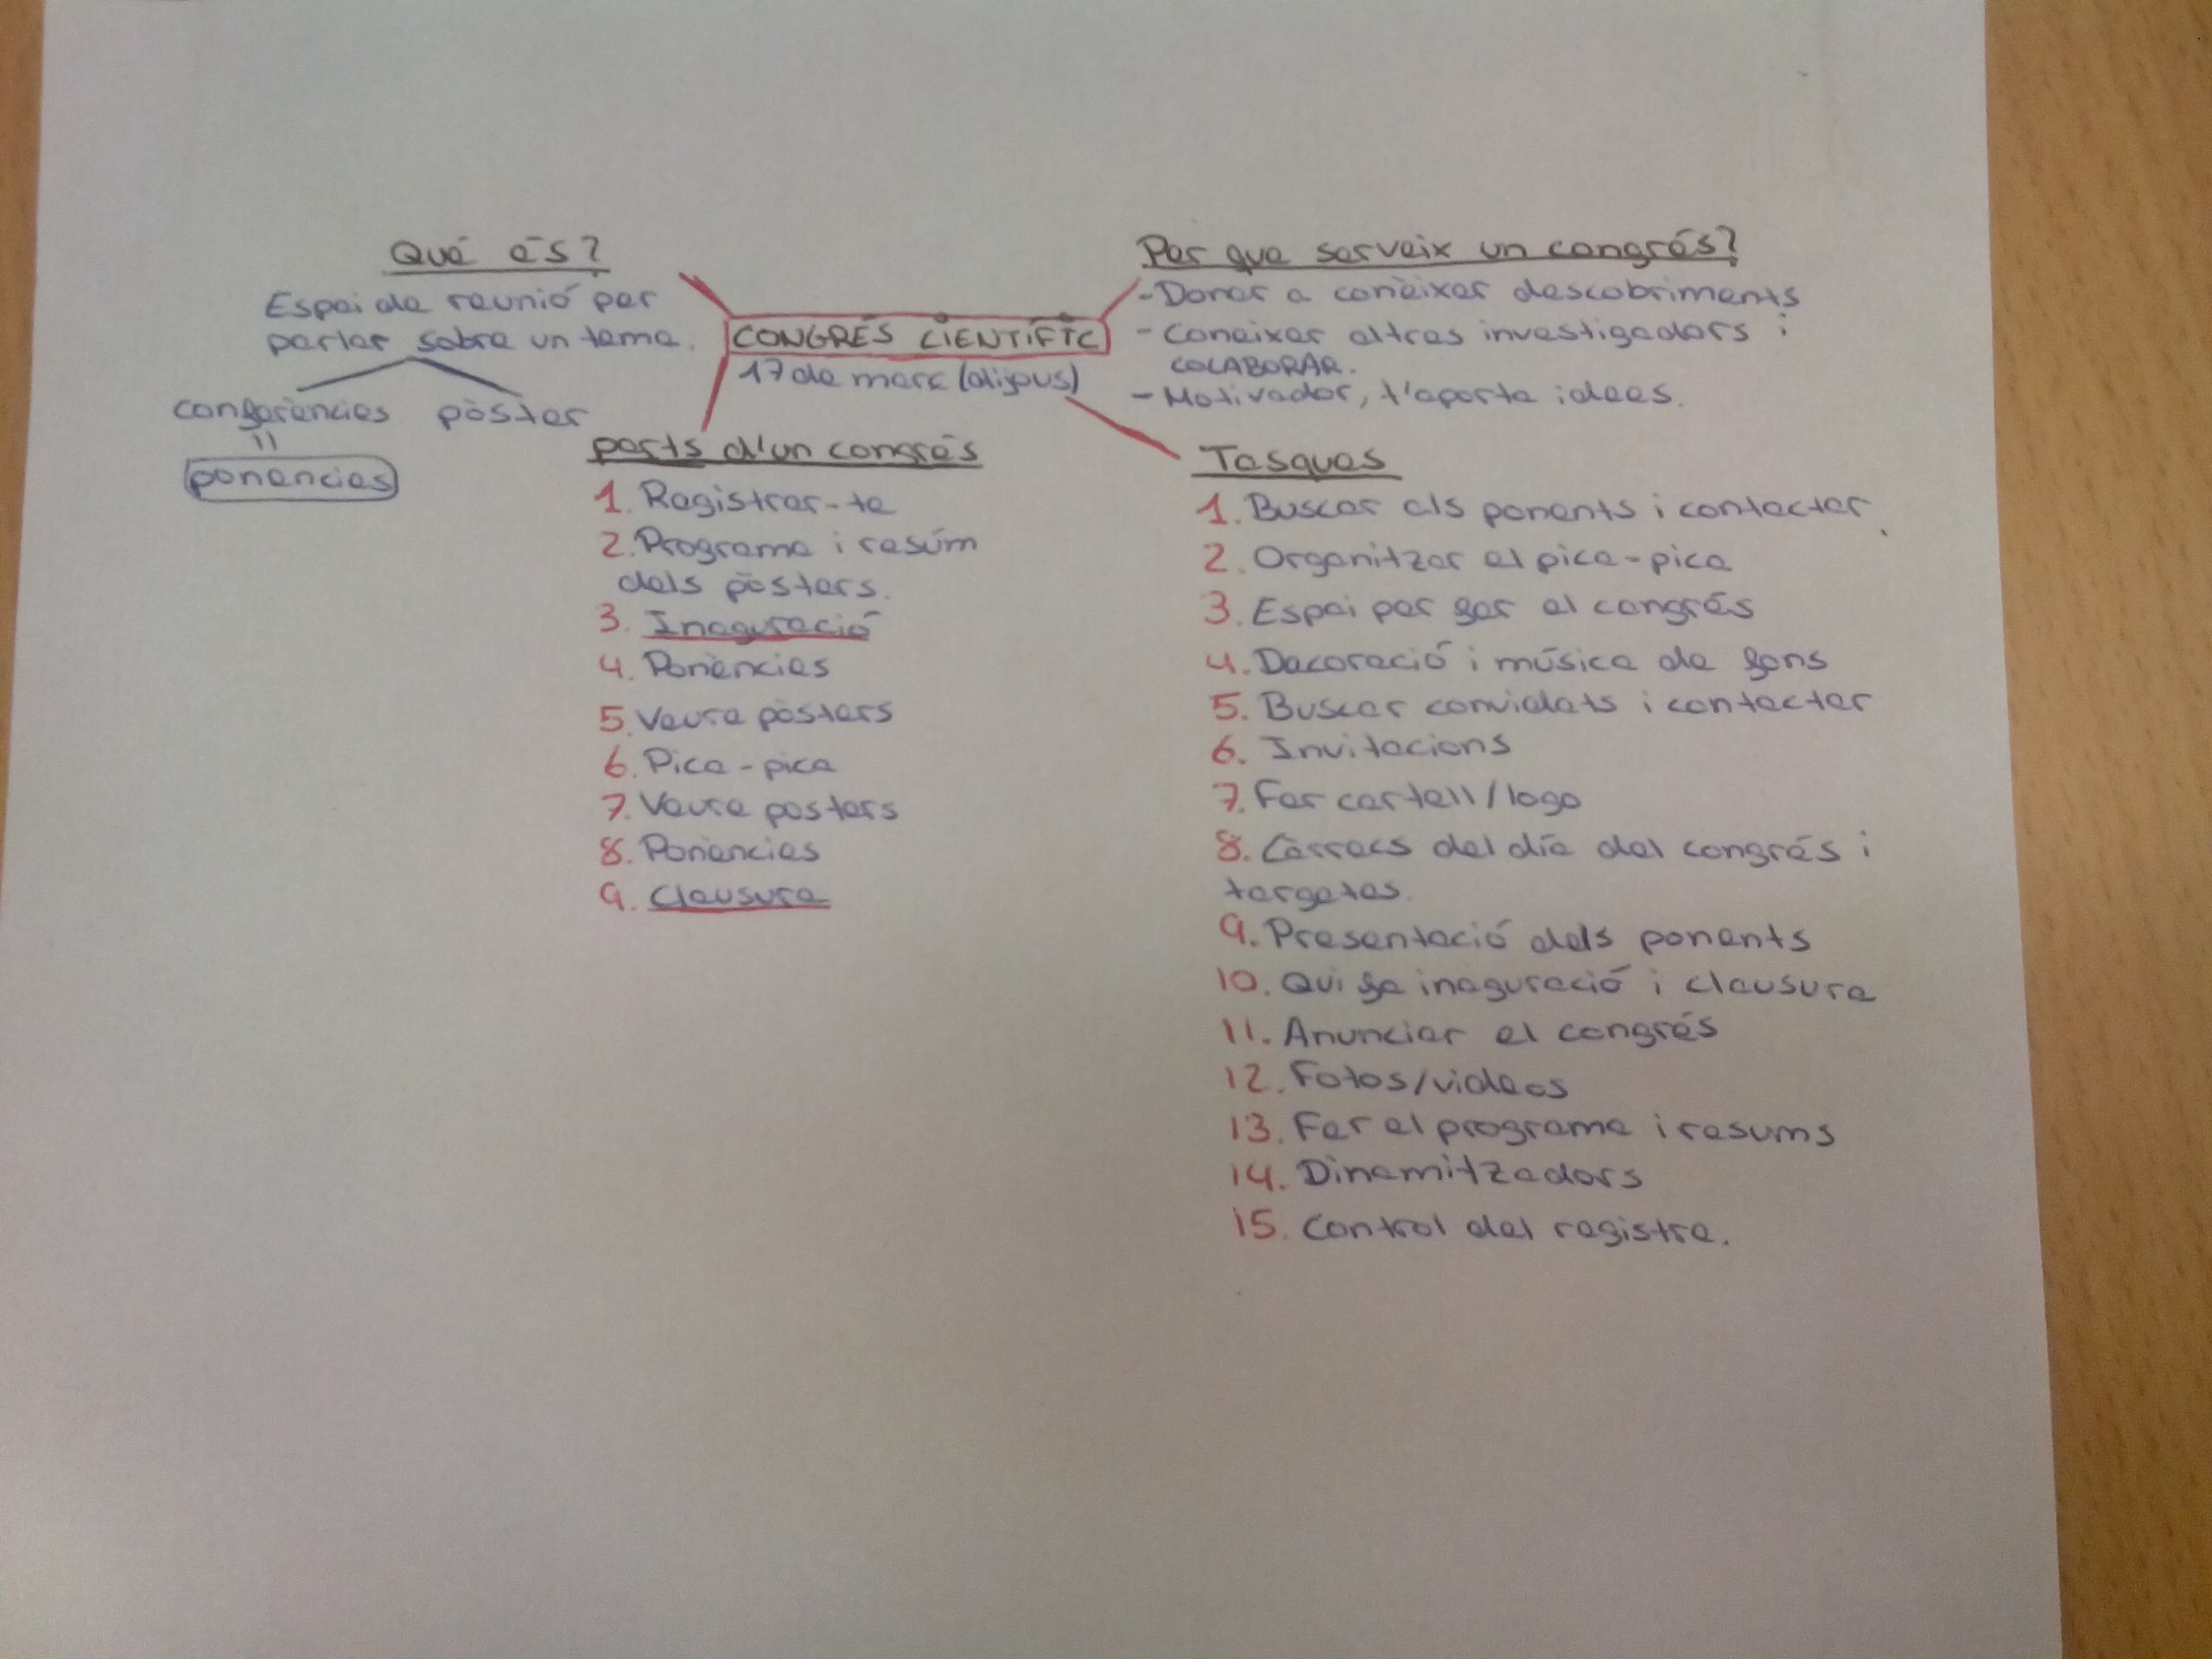 Qué és?
Espai de reunió per
parlar sobre un tema.
conferències pòster
ponencies
CONGRÉS CIENTÍFIC
17 de març (dijous)
Per que serveix un congrés?
- Donar a conèixer descobriments
- Coneixer altres investigadors i
COLABORAR.
- Motivador, t'aporta idees.
parts d'un congrés
1. Registrar-te
2. Programa i resúm
dels pòsters.
3. Inaguració
4. Ponències
5. Veure pòsters
6. Pica-pica
7. Veure posters
8. Ponències
9. Clausura
Tasques
1. Buscar els ponents i contactar.
2. Organitzar el pica-pica
3. Espai per fer el congrés
4. Decoració i música de fons
5. Buscar convidats i contactar
6. Invitacions
7. Fer cartell/logo
8. Càrrecs del día del congrés i
targetes.
9. Presentació dels ponents
10. Qui fa inaguració i clausura
11. Anunciar el congrés
12. Fotos/videos
13. Fer el programa i resums
14. Dinamitzadors
15. Control del registre.